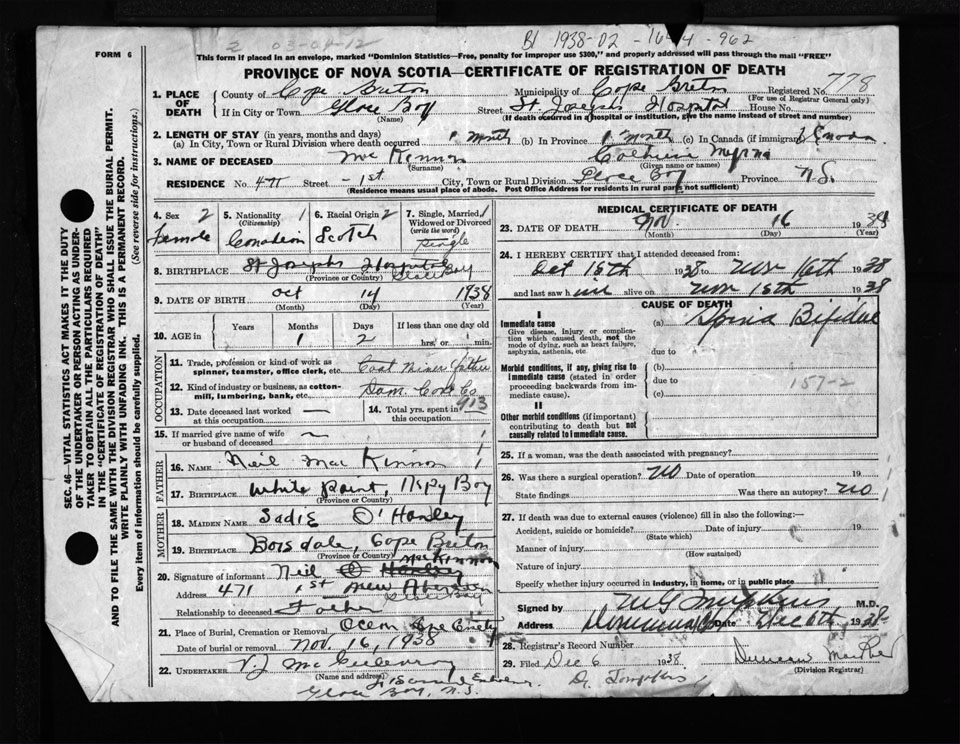 BI 1938-02
962
FORM 6
This form if placed in an envelope, marked "Dominion Statistics—Free, penalty for improper use $300," and properly addressed will pass through the mail "FREE"
PROVINCE OF NOVA SCOTIA—CERTIFICATE OF REGISTRATION OF DEATH
1. PLACE OF DEATH
County of Cape Breton Municipality of Cape Breton Registered No. 778
(For use of Registrar General only)
If in City or Town Glace Bay Street St Josephs Hospital House No.
(Name) (If death occurred in a hospital or institution, give the name instead of street and number)
2. LENGTH OF STAY (in years, months and days)
(a) In City, Town or Rural Division where death occurred 1 Month (b) In Province 1 Month (c) In Canada (if immigrant)
3. NAME OF DECEASED Mc Kinnon Myrna
(Surname) (Given name or names)
RESIDENCE No. 471 Street 1st City, Town or Rural Division Glace Bay Province N.S.
(Residence means usual place of abode. Post Office Address for residents in rural parts not sufficient)
SEC. 46—VITAL STATISTICS ACT MAKES IT THE DUTY
OF THE UNDERTAKER OR PERSON ACTING AS UNDER-
TAKER TO OBTAIN ALL THE PARTICULARS REQUIRED
IN THE "CERTIFICATE OF REGISTRATION OF DEATH"
AND TO FILE THE SAME WITH THE DIVISION REGISTRAR WHO SHALL ISSUE THE BURIAL PERMIT.
WRITE PLAINLY WITH UNFADING INK. THIS IS A PERMANENT RECORD.
Every item of information should be carefully supplied. (See reverse side for instructions.)
4. Sex 2 Female
5. Nationality 1 (Citizenship) Canadian
6. Racial Origin 2 Scotch
7. Single, Married, 1 Widowed or Divorced (write the word) Single
8. BIRTHPLACE St Josephs Hospital Glace Bay
(Province or Country)
9. DATE OF BIRTH Oct 14 1938
(Month) (Day) (Year)
10. AGE in Years Months Days If less than one day old
1 2 hrs. or min.
OCCUPATION
11. Trade, profession or kind of work as spinner, teamster, office clerk, etc. Coal Miner Father
12. Kind of industry or business, as cotton-mill, lumbering, bank, etc. Dom. Coal Co
913
13. Date deceased last worked at this occupation —
14. Total yrs. spent in this occupation
15. If married give name of wife or husband of deceased —
FATHER
16. NAME Neil Mac Kinnon
17. BIRTHPLACE White Point, Aspy Bay
(Province or Country)
MOTHER
18. MAIDEN NAME Sadie O'Hanley
19. BIRTHPLACE Boisdale, Cape Breton
(Province or Country)
20. Signature of informant Neil O Hanley McKinnon
Address 471 1st
Relationship to deceased Father
21. Place of Burial, Cremation or Removal Ocean
Date of burial or removal Nov. 16, 1938
22. UNDERTAKER V.J. Mc Gillivray
(Name and address)
Glace Bay, N.S.
MEDICAL CERTIFICATE OF DEATH
23. DATE OF DEATH Nov. 16 1938
(Month) (Day) (Year)
24. I HEREBY CERTIFY that I attended deceased from:
Oct 15th 1938 to Nov 16th 1938
and last saw h alive on Nov 15th 1938
CAUSE OF DEATH
I
Immediate cause
Give disease, injury or complication which caused death, not the mode of dying, such as heart failure, asphyxia, asthenia, etc.
(a) Spina Bifida
due to
Morbid conditions, if any, giving rise to immediate cause (stated in order proceeding backwards from immediate cause).
(b)
due to 157-2
(c)
II
Other morbid conditions (if important) contributing to death but not causally related to immediate cause.
25. If a woman, was the death associated with pregnancy?
26. Was there a surgical operation? No Date of operation 19
State findings Was there an autopsy? No
27. If death was due to external causes (violence) fill in also the following:—
Accident, suicide or homicide? Date of injury 19
(State which)
Manner of injury
(How sustained)
Nature of injury
Specify whether injury occurred in industry, in home, or in public place
Signed by M.D.
Address Dominion Date Dec 6th 1938
28. Registrar's Record Number
29. Filed Dec 6 1938 Duncan
(Division Registrar)
Dr Tompkins